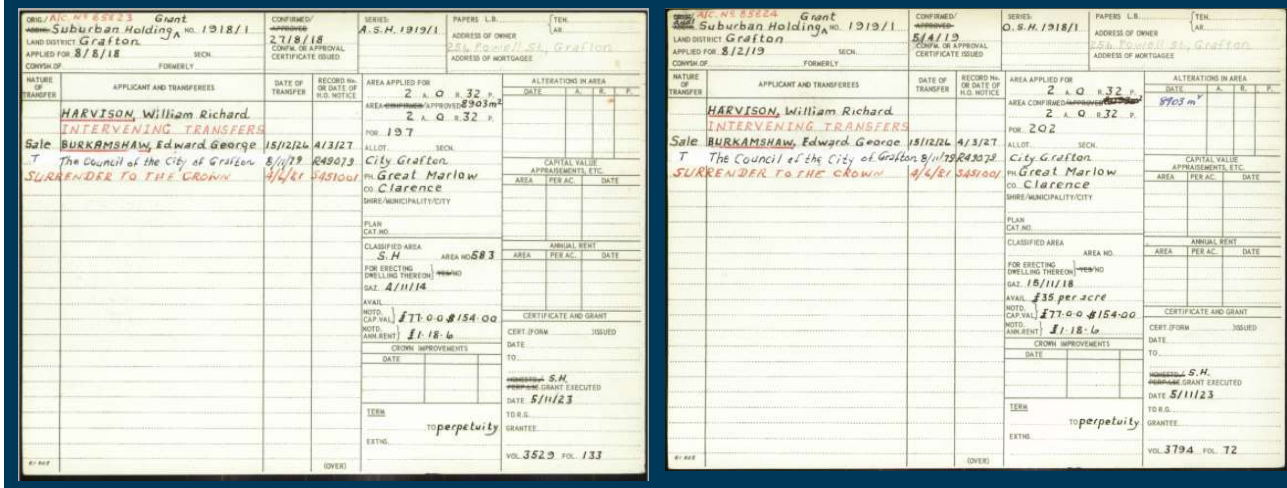 A/C. Nº 65623
Grant
ORIG./
Suburban Holding NO. 1918/1
LAND DISTRICT Grafton
APPLIED FOR 8/8/18 SECN.
CONVSN.OF FORMERLY
CONFIRMED/
APPROVED
27/8/18
CONFM. OR APPROVAL
CERTIFICATE ISSUED
SERIES:
A.S.H. 1919/1
PAPERS L.B.
TEN.
AR.
ADDRESS OF OWNER
256 Powell St., Grafton
ADDRESS OF MORTGAGEE
NATURE OF TRANSFER
APPLICANT AND TRANSFEREES
DATE OF TRANSFER
RECORD No. OR DATE OF H.O. NOTICE
HARVISON, William Richard
INTERVENING TRANSFERS
Sale BURKAMSHAW, Edward George 15/12/26 4/3/27
T The Council of the City of Grafton 8/11/79 R49079
SURRENDER TO THE CROWN 4/6/81 S451001
AREA APPLIED FOR
2 A. 0 R. 32 P.
AREA CONFIRMED/APPROVED 8903m²
2 A. 0 R. 32 P.
POR. 197
ALLOT. SECN.
City Grafton
PH. Great Marlow
CO. Clarence
SHIRE/MUNICIPALITY/CITY
PLAN
CAT.NO.
CLASSIFIED AREA
S.H AREA NO. 583
FOR ERECTING
DWELLING THEREON YES/NO
GAZ. 4/11/14
AVAIL.
NOTD.
CAP.VAL. £77-0-0 $154-00
NOTD.
ANN.RENT £1-18-6
CROWN IMPROVEMENTS
DATE
TERM
TO perpetuity
EXTNS.
ALTERATIONS IN AREA
DATE A. R. P.
CAPITAL VALUE
APPRAISEMENTS, ETC.
AREA PER AC. DATE
ANNUAL RENT
AREA PER AC. DATE
CERTIFICATE AND GRANT
CERT.(FORM )ISSUED
DATE
TO
S.H.
GRANT EXECUTED
DATE 5/11/23
TO R.G.
GRANTEE
VOL. 3529 FOL. 133
(OVER)
A/C. Nº 65624
Grant
Suburban Holding NO. 1919/1
LAND DISTRICT Grafton
APPLIED FOR 8/2/19 SECN.
CONVSN.OF FORMERLY
CONFIRMED/
APPROVED
5/4/19
CONFM. OR APPROVAL
CERTIFICATE ISSUED
SERIES:
O.S.H. 1918/1
PAPERS L.B.
TEN.
AR.
ADDRESS OF OWNER
256 Powell St., Grafton
ADDRESS OF MORTGAGEE
NATURE OF TRANSFER
APPLICANT AND TRANSFEREES
DATE OF TRANSFER
RECORD No. OR DATE OF H.O. NOTICE
HARVISON, William Richard
INTERVENING TRANSFERS
Sale BURKAMSHAW, Edward George 15/12/26 4/3/27
T The Council of the City of Grafton 8/11/79 R49079
SURRENDER TO THE CROWN 4/6/81 S451001
AREA APPLIED FOR
2 A. 0 R. 32 P.
AREA CONFIRMED/APPROVED
2 A. 0 R. 32 P.
POR. 202
ALLOT. SECN.
City Grafton
PH. Great Marlow
CO. Clarence
SHIRE/MUNICIPALITY/CITY
PLAN
CAT.NO.
CLASSIFIED AREA
AREA NO.
FOR ERECTING
DWELLING THEREON YES/NO
GAZ. 15/11/18
AVAIL. £35 per acre
NOTD.
CAP.VAL. £77-0-0 $154-00
NOTD.
ANN.RENT £1-18-6
CROWN IMPROVEMENTS
DATE
TERM
TO perpetuity
EXTNS.
ALTERATIONS IN AREA
DATE A. R. P.
8903 m²
CAPITAL VALUE
APPRAISEMENTS, ETC.
AREA PER AC. DATE
ANNUAL RENT
AREA PER AC. DATE
CERTIFICATE AND GRANT
CERT.(FORM )ISSUED
DATE
TO
S.H.
GRANT EXECUTED
DATE 5/11/23
TO R.G.
GRANTEE
VOL. 3794 FOL. 72
(OVER)